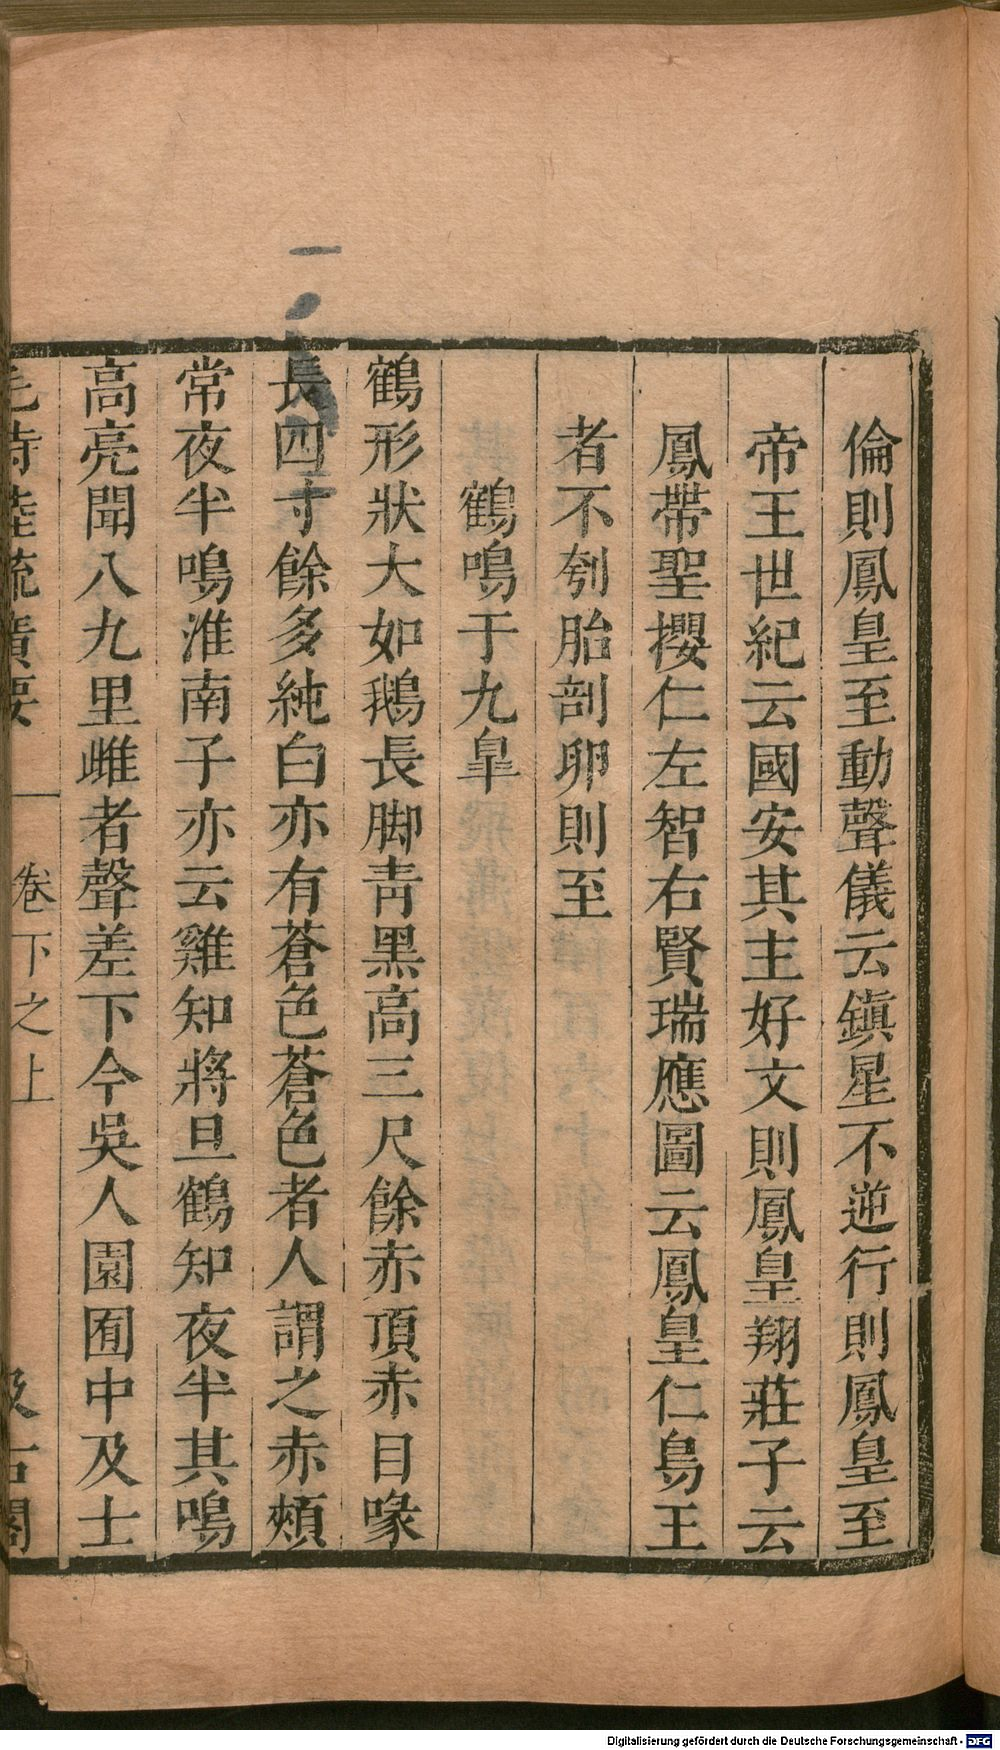 倫則鳳皇至動聲儀云鎮星不逆行則鳳皇至
帝王世紀云國安其主好文則鳳皇翔莊子云
鳳帶聖攖仁左智右賢瑞應圖云鳳皇仁鳥王
者不刳胎剖卵則至
鶴鳴于九臯
鶴形狀大如鵝長脚靑黑高三尺餘赤頂赤目喙
長四寸餘多純白亦有蒼色蒼色者人謂之赤頰
常夜半鳴淮南子亦云雞知將旦鶴知夜半其鳴
高亮聞八九里雌者聲差下今吳人園囿中及士
毛詩陸疏廣要 卷下之上 汲古閣
Digitalisierung gefördert durch die Deutsche Forschungsgemeinschaft - DFG